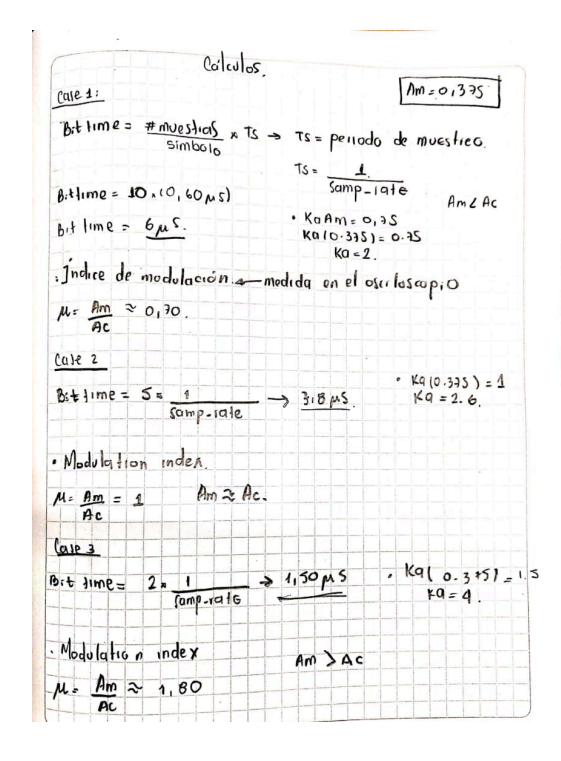 Cálculos.
Case 1:
Am = 0,375
Bit time = #muestras / símbolo × TS → TS = periodo de muestreo.
TS = 1 / Samp_rate
Am < Ac
Bit time = 10 × (0,60 μs)
bit time = 6 μs.
• KaAm = 0,75
Ka(0.375) = 0.75
Ka = 2.
. Índice de modulación. ← medida en el osciloscopio
μ = Am / Ac ≈ 0,70.
Case 2
Bit time = 5 × 1 / samp_rate → 3,8 μs.
• Ka(0.375) = 1
Ka = 2.6.
• Modulation index.
μ = Am / Ac = 1
Am ≈ Ac.
Case 3
Bit time = 2 × 1 / samp_rate → 1,50 μs
• Ka(0.375) = 1.5
Ka = 4.
. Modulation index
Am > Ac
μ = Am / Ac ≈ 1,80